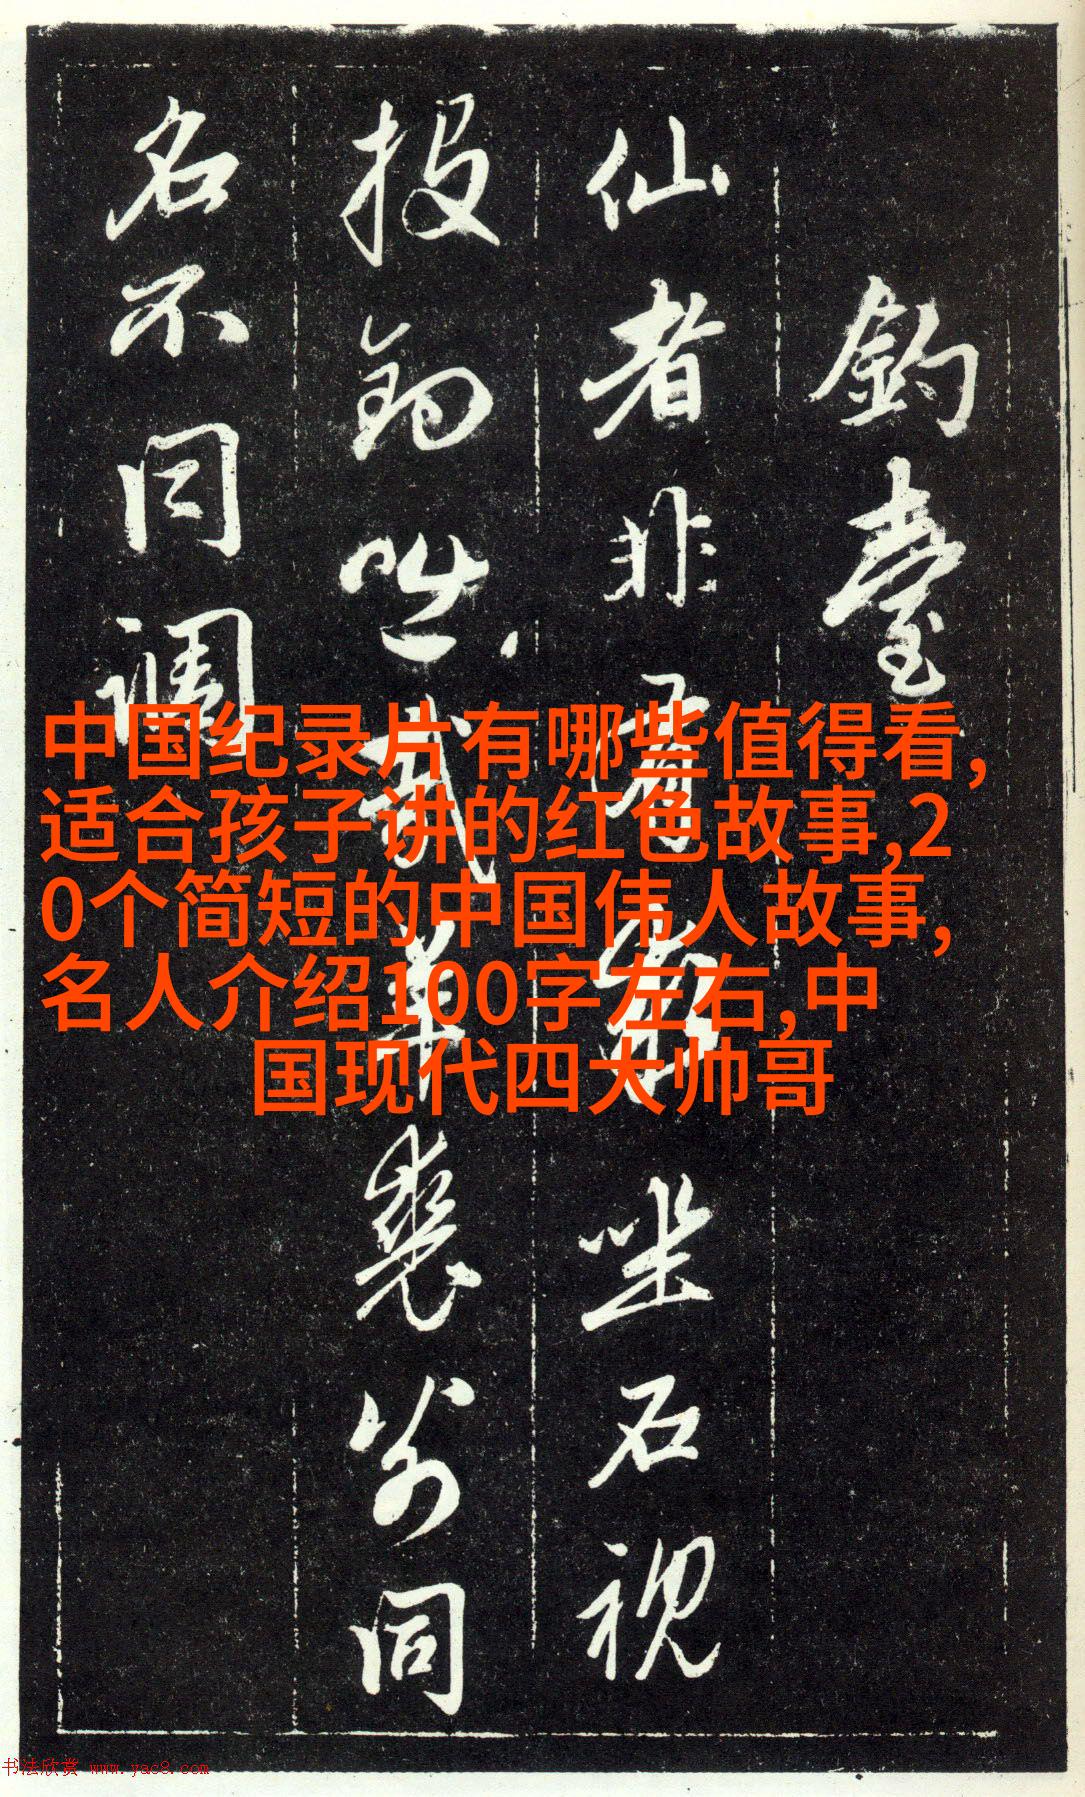 釣臺
仙者非有教坐石視
投釣咄哉裘萬同
名不同調
中国纪录片有哪些值得看,
适合孩子讲的红色故事,2
0个简短的中国伟人故事,
名人介绍100字左右,中
国现代四大帅哥
书法欣赏 www.yac8.com